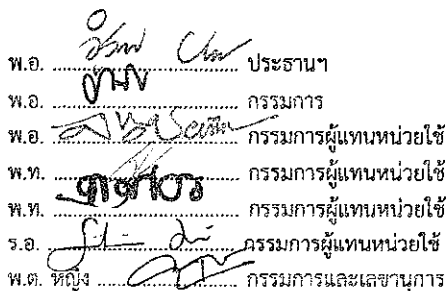 พ.อ. ........................ ประธานฯ
พ.อ. ........................ กรรมการ
พ.อ. ........................ กรรมการผู้แทนหน่วยใช้
พ.ท. ........................ กรรมการผู้แทนหน่วยใช้
พ.ท. ........................ กรรมการผู้แทนหน่วยใช้
ร.อ. ........................ กรรมการผู้แทนหน่วยใช้
พ.ต. หญิง ........................ กรรมการและเลขานุการ